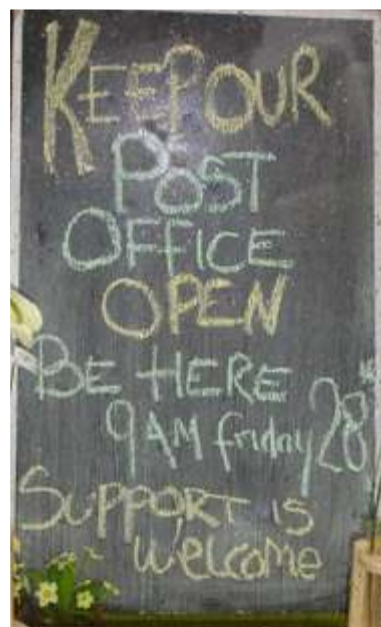 KEEP OUR
POST
OFFICE
OPEN
BE HERE
9AM friday 28th
SUPPORT IS
welcome